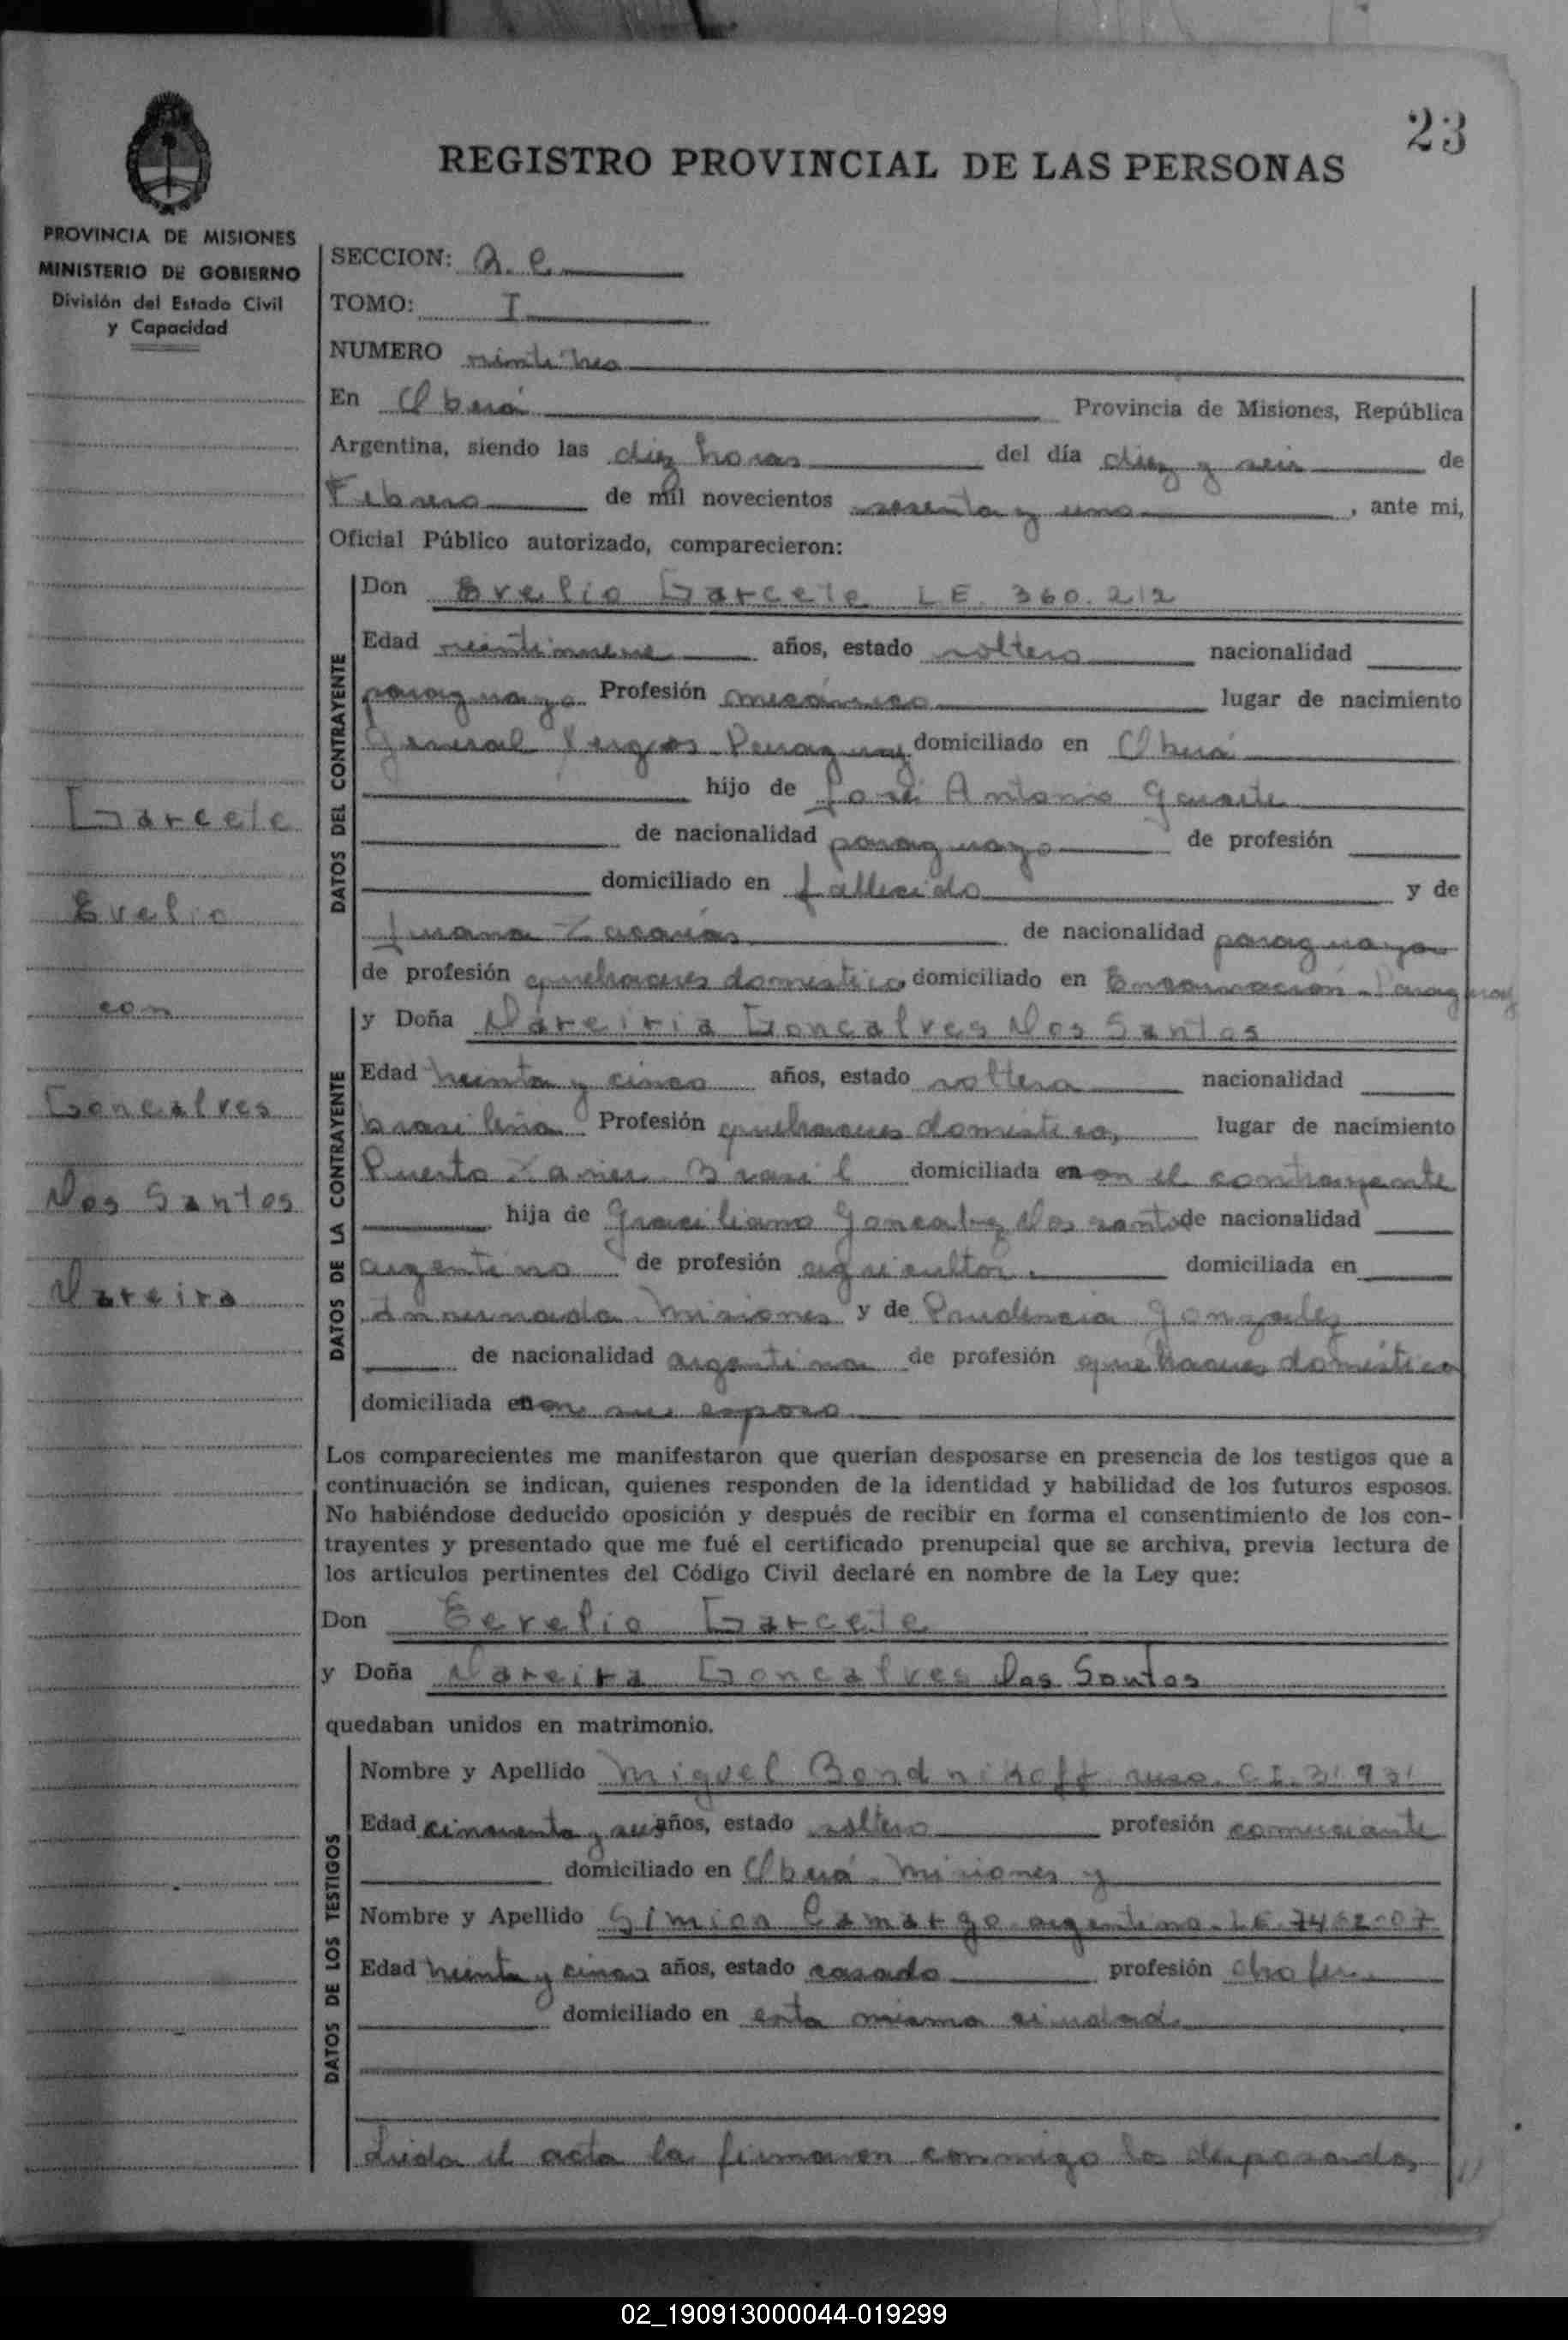 23
REGISTRO PROVINCIAL DE LAS PERSONAS
PROVINCIA DE MISIONES
MINISTERIO DE GOBIERNO
División del Estado Civil
y Capacidad
SECCION:
TOMO: I
NUMERO veintitres
En Oberá Provincia de Misiones, República
Argentina, siendo las diez horas del día diez y seis de
Febrero de mil novecientos sesenta y uno, ante mi,
Oficial Público autorizado, comparecieron:
DATOS DEL CONTRAYENTE
Don Evelio Garcete L E. 360.212
Edad veintinueve años, estado soltero nacionalidad
paraguayo Profesión mecánico lugar de nacimiento
General Paraguay domiciliado en Oberá
hijo de José Antonio Garcete
de nacionalidad paraguayo de profesión
domiciliado en fallecido y de
Juana de nacionalidad paraguaya
de profesión quehaceres domestico domiciliado en Encarnación - Paraguay
Garcete
Evelio
con
Goncalves
Dos Santos
Nareira
DATOS DE LA CONTRAYENTE
y Doña Goncalves Dos Santos
Edad treinta y cinco años, estado soltera nacionalidad
brasileña Profesión quehaceres domestico, lugar de nacimiento
Puerto Brasil domiciliada en el contrayente
hija de Graciliano Dos santos de nacionalidad
argentino de profesión agricultor. domiciliada en
Misiones y de Prudencia Gonzalez
de nacionalidad argentina de profesión quehaceres doméstico
domiciliada en su esposo
Los comparecientes me manifestaron que querían desposarse en presencia de los testigos que a
continuación se indican, quienes responden de la identidad y habilidad de los futuros esposos.
No habiéndose deducido oposición y después de recibir en forma el consentimiento de los con-
trayentes y presentado que me fué el certificado prenupcial que se archiva, previa lectura de
los artículos pertinentes del Código Civil declaré en nombre de la Ley que:
Don Eevelio Garcete
y Doña Nareira Goncalves Dos Santos
quedaban unidos en matrimonio.
DATOS DE LOS TESTIGOS
Nombre y Apellido Miguel Bondnikoff ruso. C.I.
Edad cincuenta y seis años, estado soltero profesión comerciante
domiciliado en Oberá - Misiones y
Nombre y Apellido Camargo argentino - L E
Edad treinta y cinco años, estado casado profesión chofer
domiciliado en esta misma ciudad.
Leida el acta la firmaron conmigo lo desposados,
02_190913000044-019299